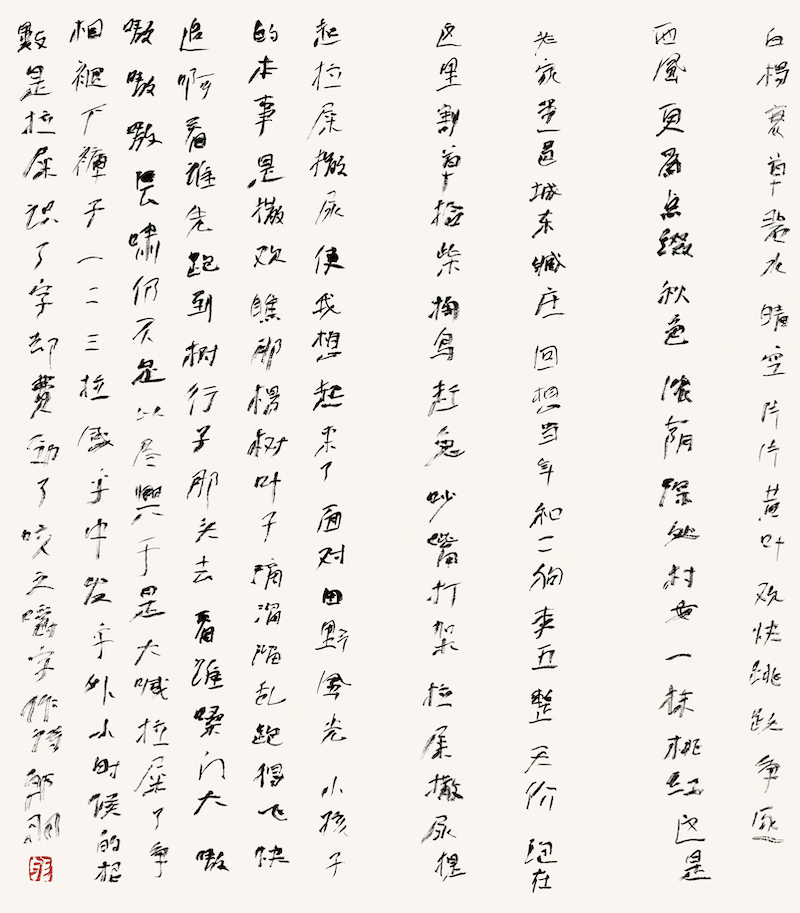 白楊衰草碧水晴空片片黄叶欢快跳跃争逐
西風更為点缀秋色濃荫深处村女一抹桃红这是
老家邑城东臧庄回想当年和二狗夹五整天价跑在
这里割草捡柴掏鸟赶兔吵嘴打架拉屎撒尿提
起拉屎撒尿便我想起来了面对田野風光小孩子
的本事是撒欢瞧那楊树叶子滴溜乱跑得飞快
追啊看谁先跑到树行子那头去看谁嗓门大嗷
嗷嗷嗷长嘯仍不足以尽興于是大喊拉屎了争
相褪下褲子一二三拉感乎中发乎外小时候的招
數是拉屎识了字却费劲了咬文嚼字作诗